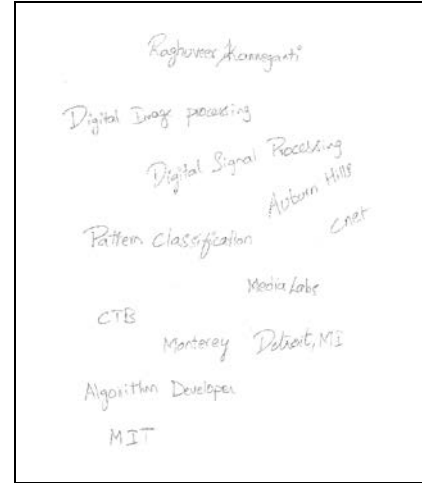 Raghuveer Kanneganti
Digital Image processing
Digital Signal Processing
Auburn Hills
Cnet
Pattern Classification
Media Labs
CTB
Monterey Detroit, MI
Algorithm Developer
MIT